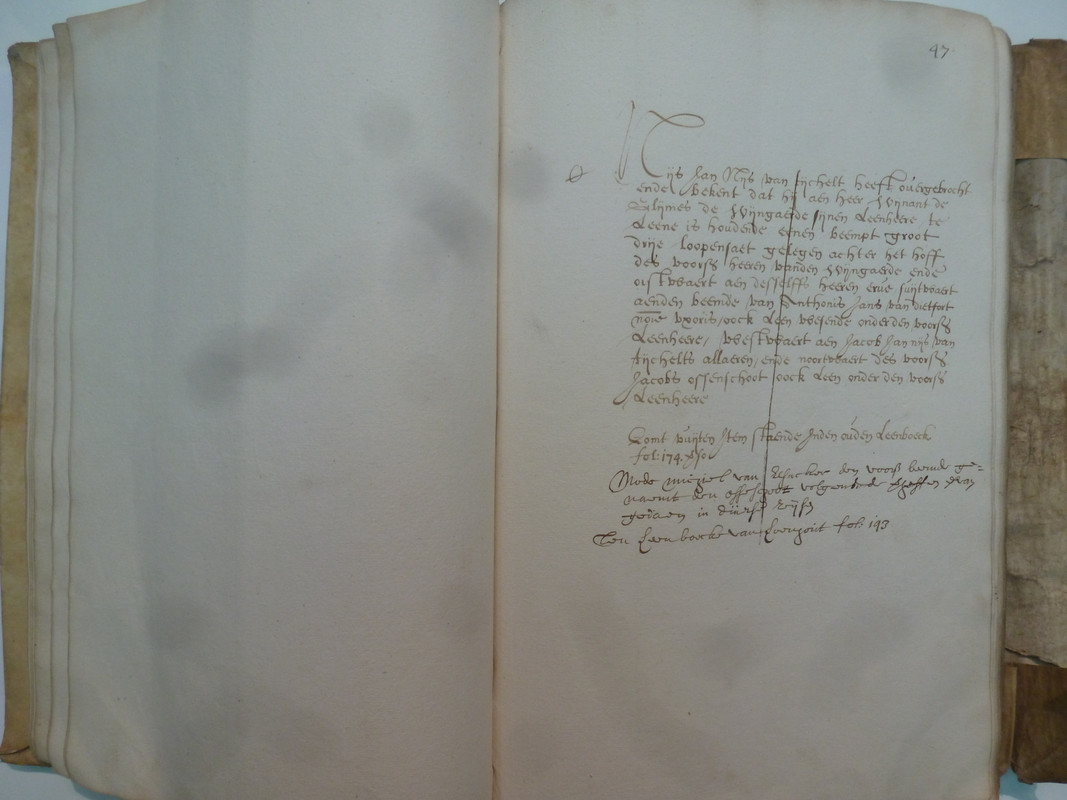 47
Nijs Jan Nijs van tichelt heeft ouergebrocht
ende bekent dat hij aen heer Wijnant de
Glijmes de Wijngaerde sijnen Leenheere te
Leene is houdende eenen beempt groot
drije loopensaet gelegen achter het hoff
des voors heeren vanden Wijngaerde ende
oistwaert aen desselffs heeren erue suijtwaert
aenden beemde van Anthonis Jans van dietfort
noie uxoris, oock Leen wesende onder den voors
Leenheere, westwaert aen Jacob Jan nijs van
tichelts allaeren, ende noortwaert des voors
Jacobs ossenschoot oock Leen onder den voors
Leenheere
Comt vuijten Item staende Inden ouden Leenboeck
fol: 174. vso
Mode van den voors beemde ge-
naemt den volgende
gedaen in
Ten Leenboecke van Loenhout fol: 193